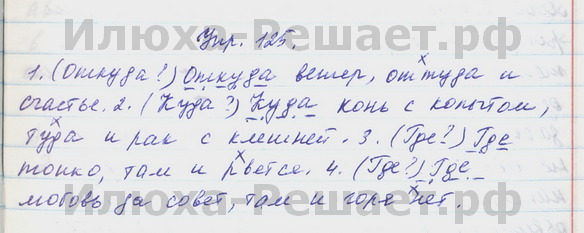 Упр. 125.
1. (Откуда?) Откуда ветер, оттуда и
счастье. 2. (Куда?) Куда конь с копытом,
туда и рак с клешней. 3. (Где?) Где
тонко, там и рвется. 4. (Где?) Где
любовь да совет, там и горя нет.
Илюха-Решает.рф
Илюха-Решает.рф